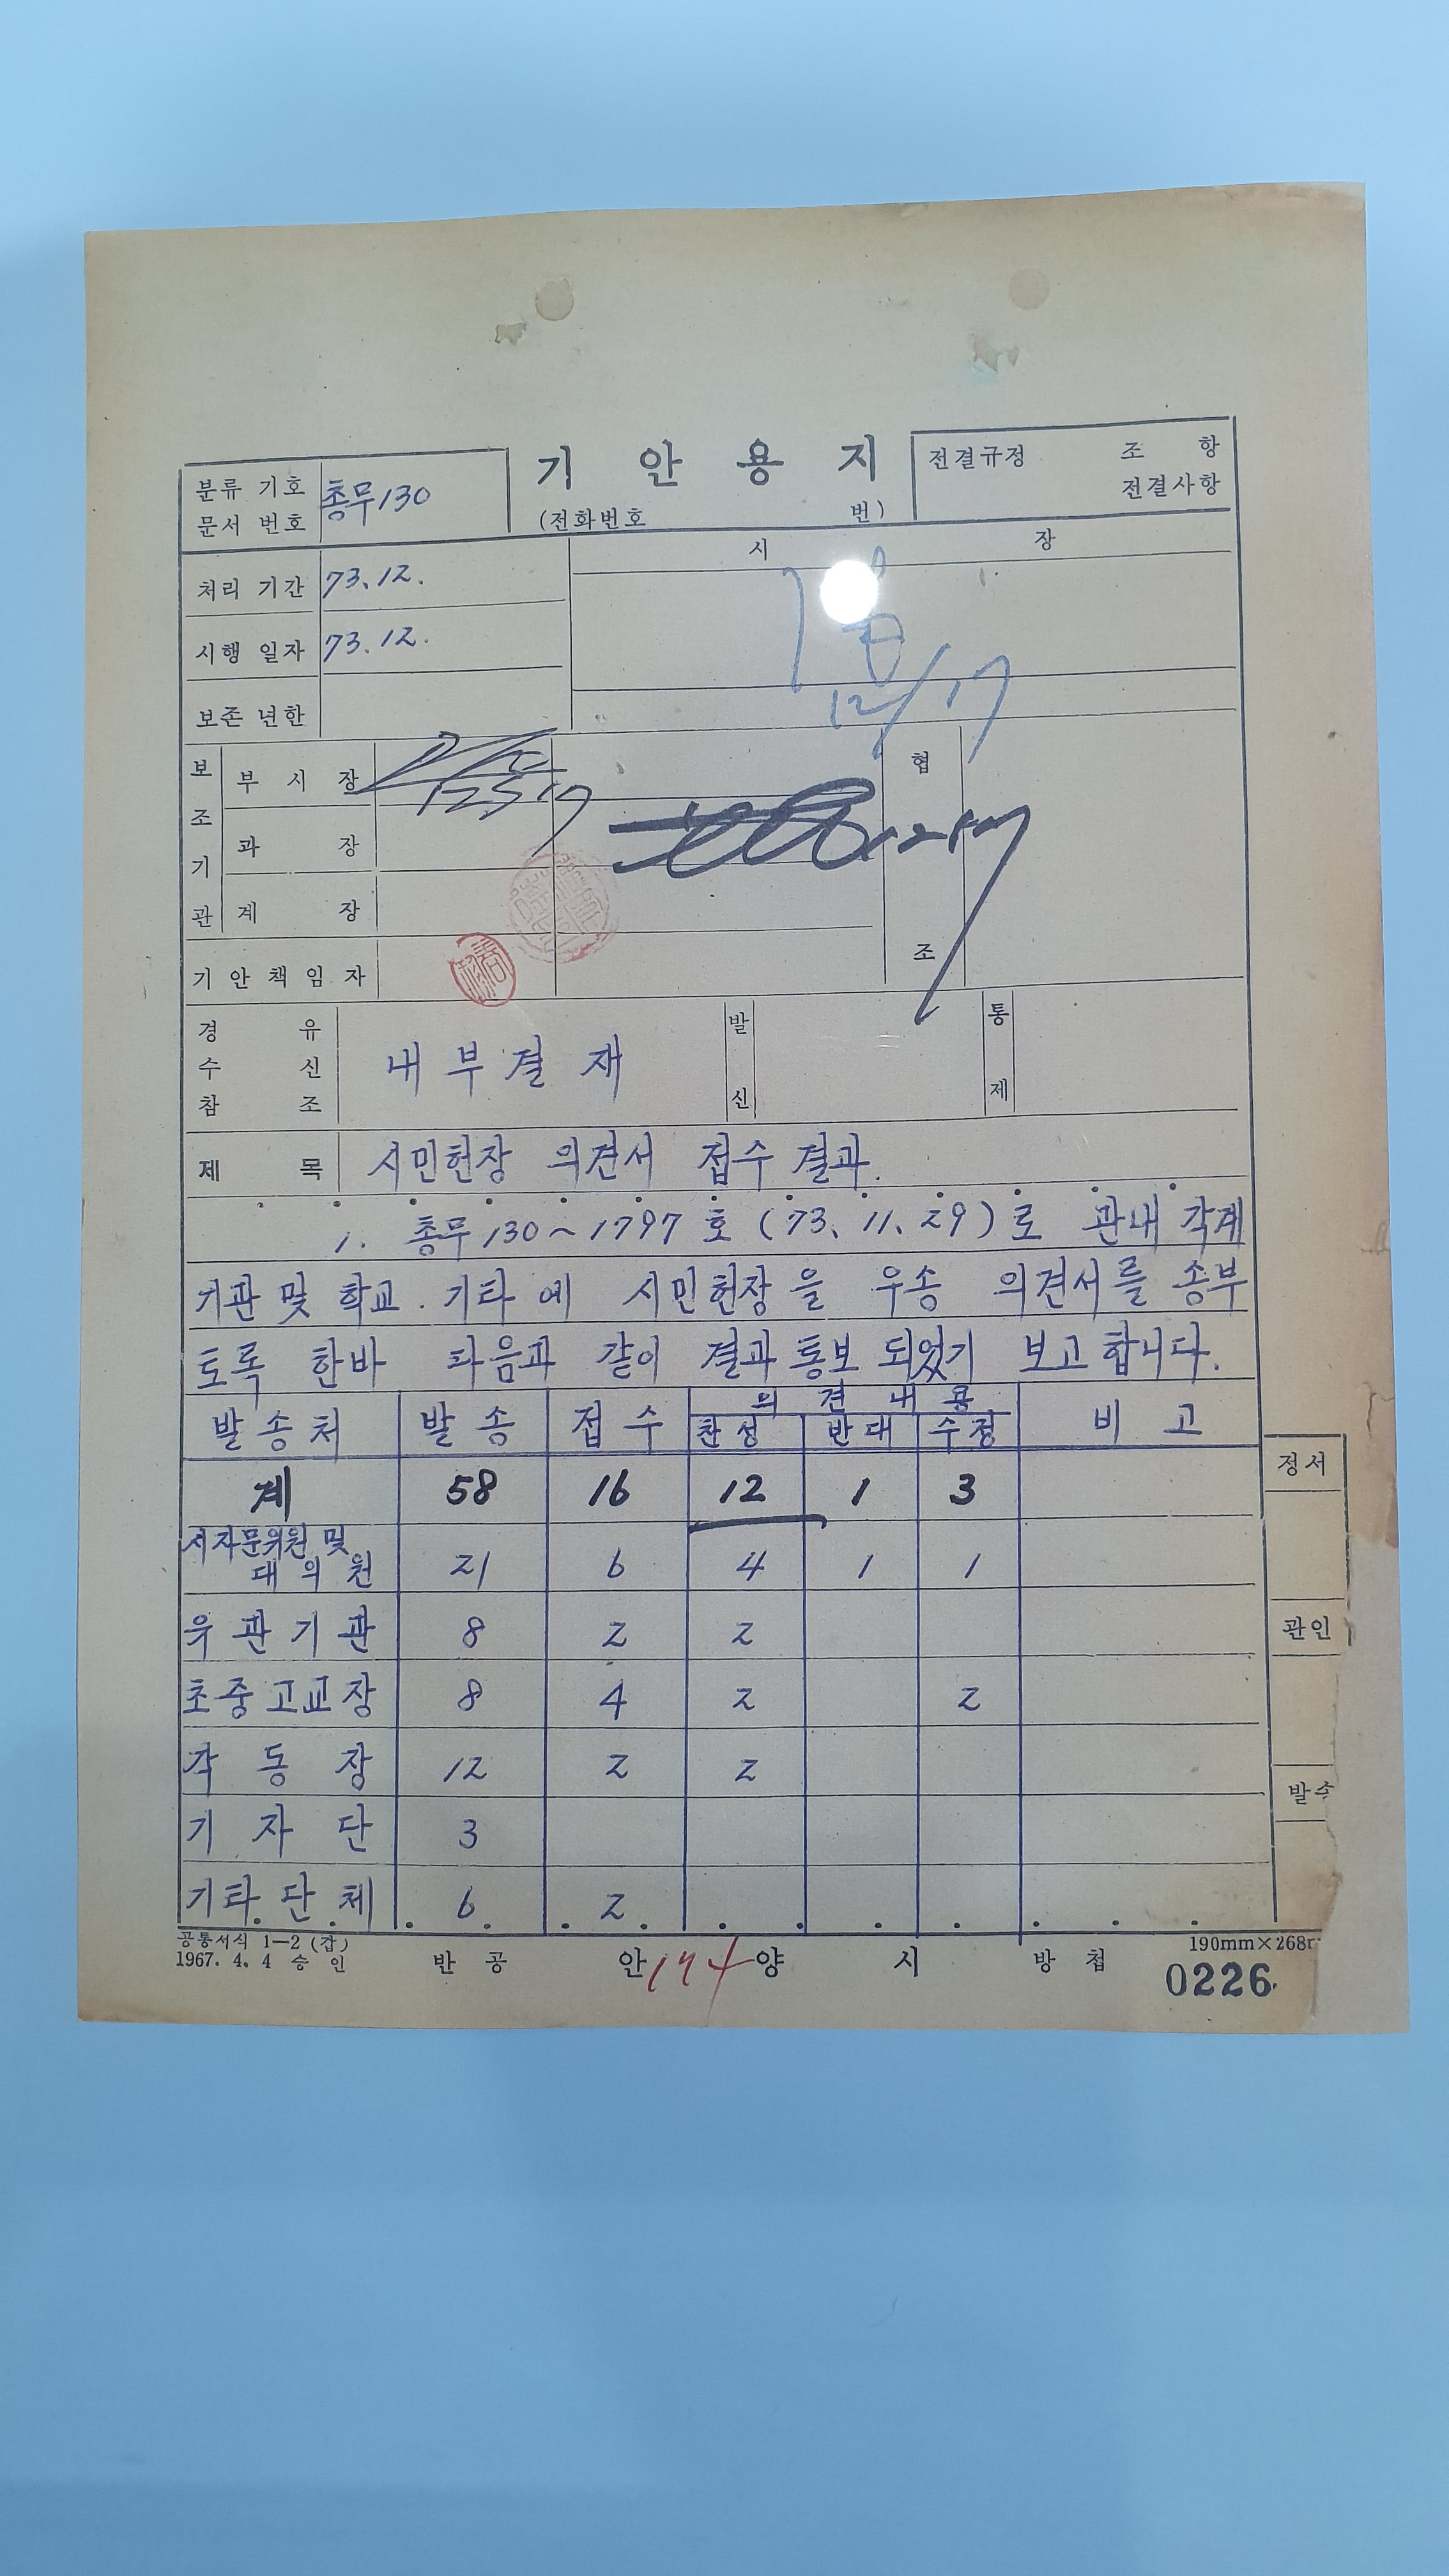 기 안 용 지
분류 기호
문서 번호
총무130
(전화번호 번)
전결규정 조 항
전결사항
처리 기간 73.12.
시 장
시행 일자 73.12.
12/17
보존 년한
보조기관
부 시 장
과 장
계 장
협조
기 안 책 임 자
경 유
수 신
참 조
내부결재
발신
통제
제 목 시민헌장 의견서 접수 결과.
1. 총무130~1797호(73.11.29)로 관내 각계
기관 및 학교. 기타에 시민헌장을 우송 의견서를 송부
토록 한바 다음과 같이 결과 통보 되었기 보고합니다.
발송처 발송 접수 의견내용 비고
찬성 반대 수정
계 58 16 12 1 3
시자문위원 및
대의원 21 6 4 1 1
유관기관 8 2 2
초중고교장 8 4 2 2
각동장 12 2 2
기자단 3
기타단체 6 2
정서
관인
발송
공통서식 1—2 (갑)
1967. 4. 4 승 인
반 공 안 양 시 방 첩
174
190mm×268m
0226